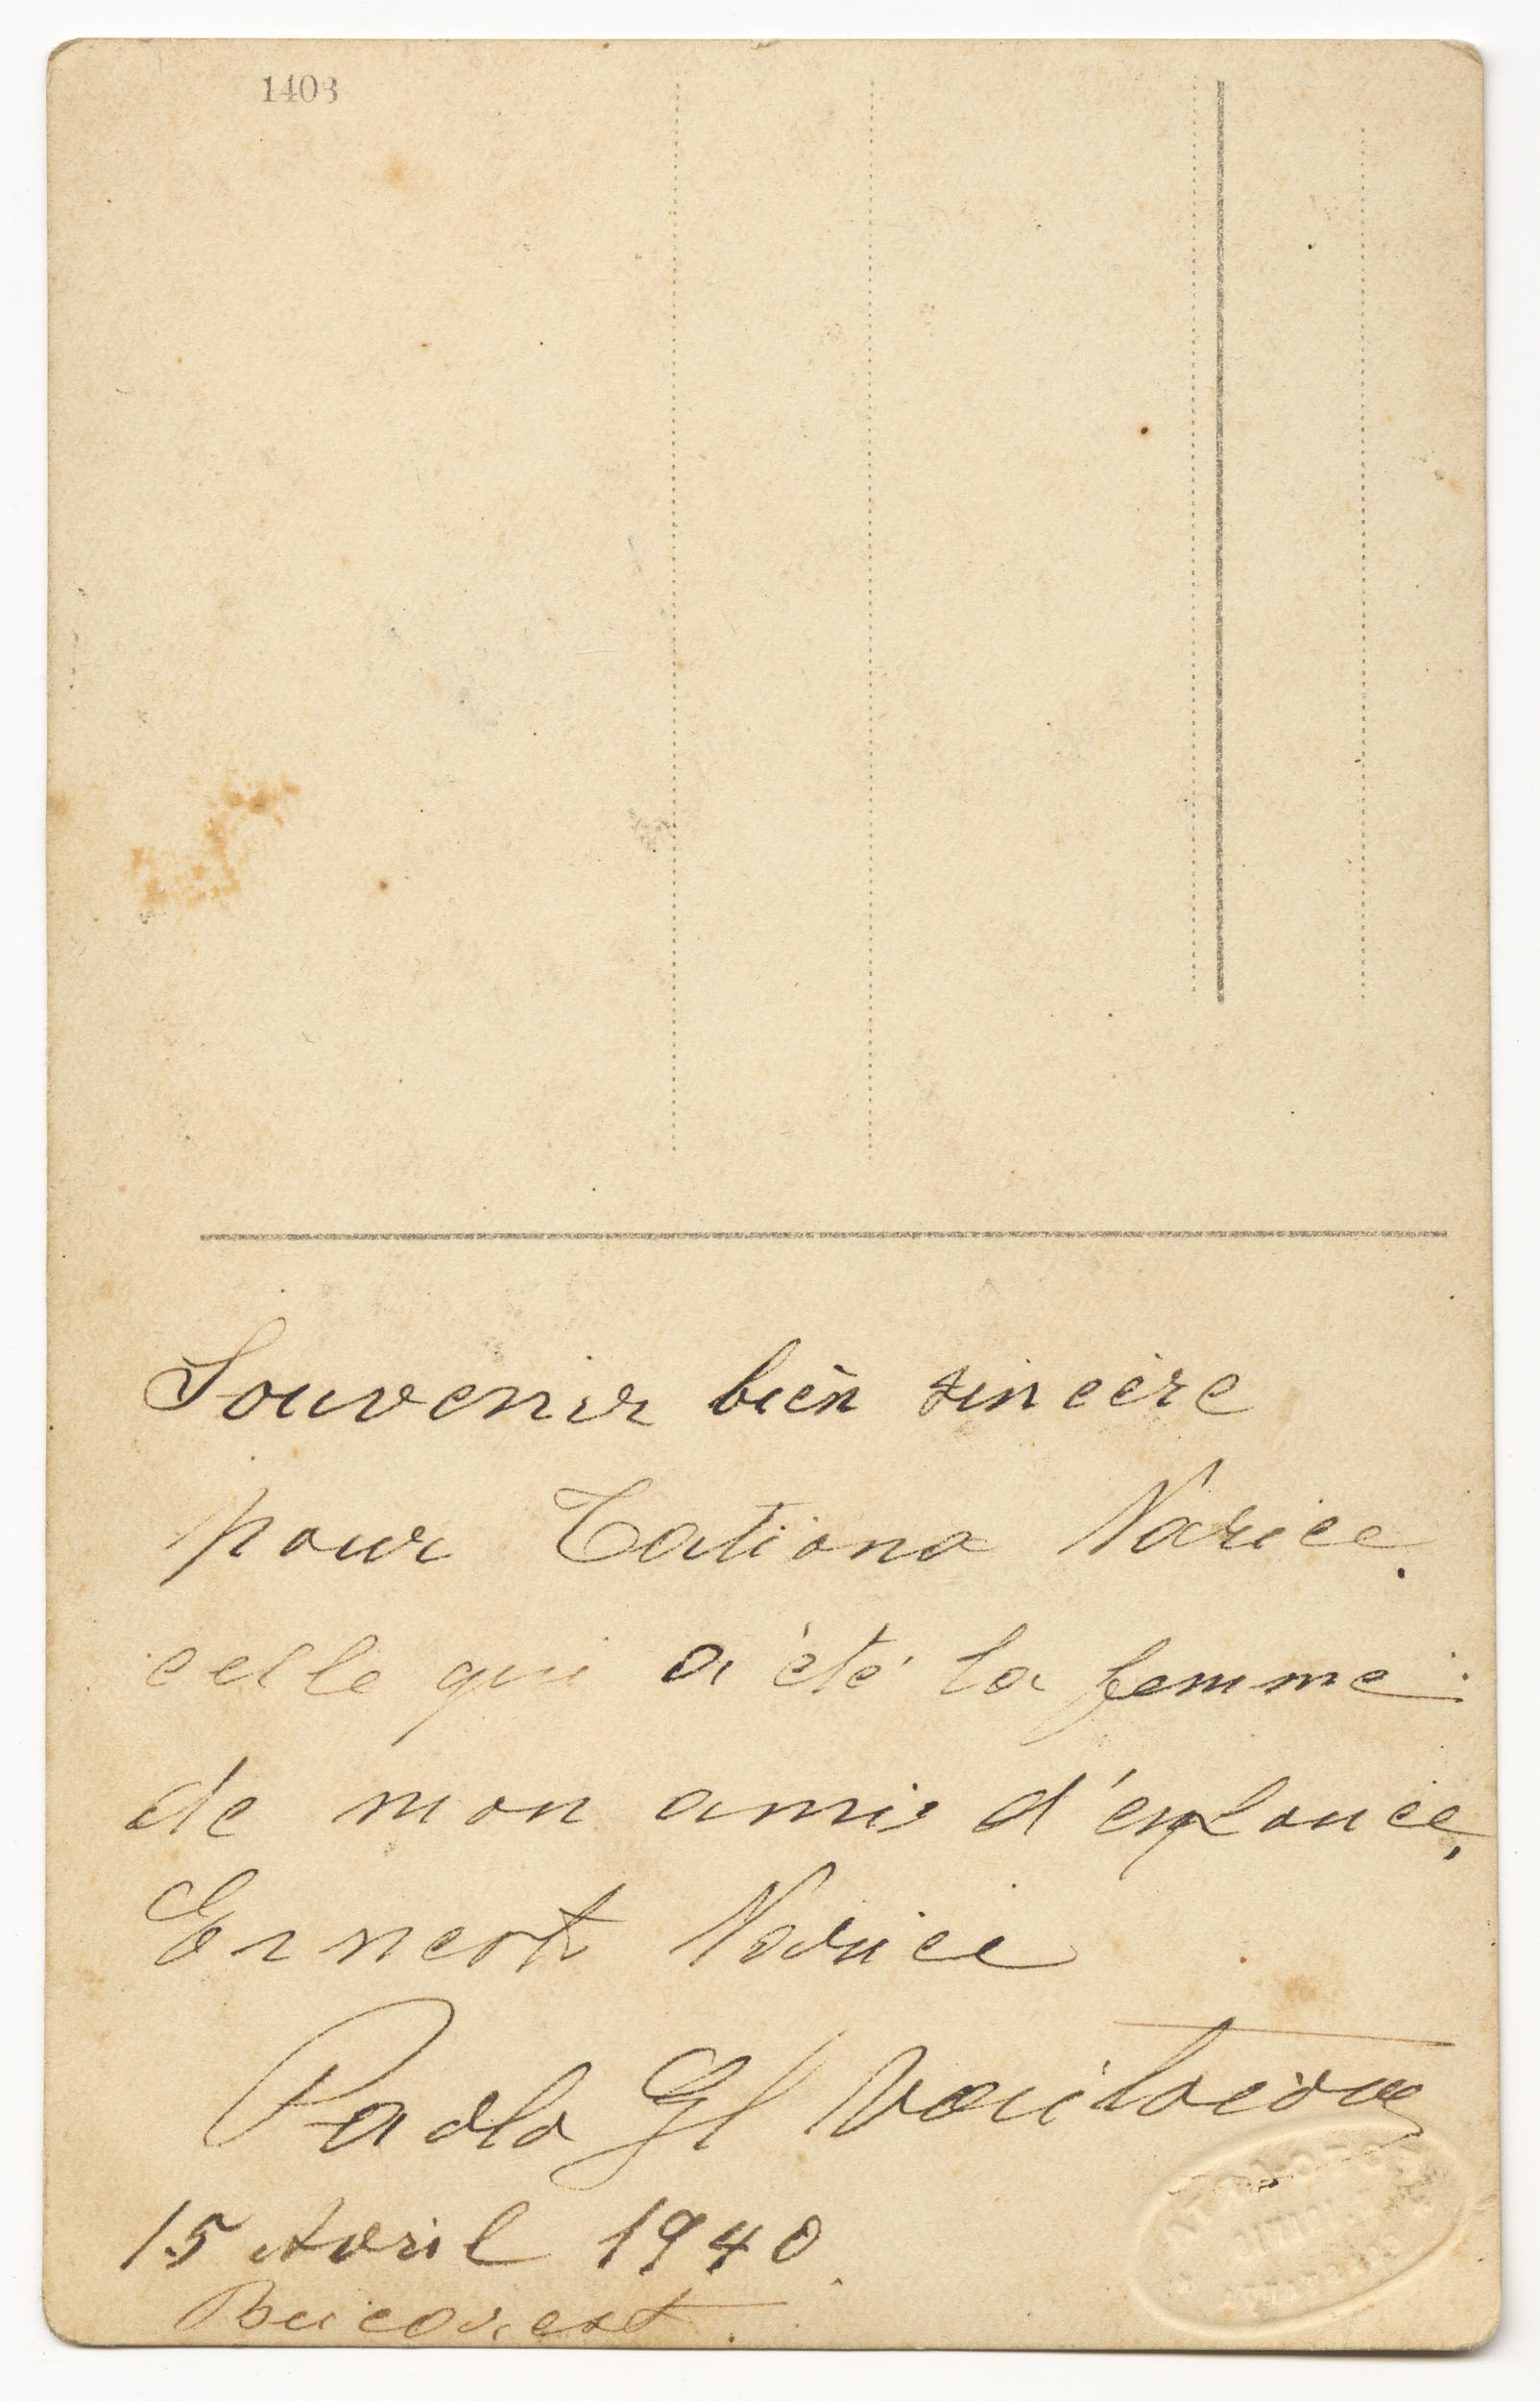 1403
Souvenir bien sincère
pour Tatiana Narice.
celle qui a été la femme
de mon ami d'enfance,
Ernest Narice
Paolo Gl
15 Avril 1940.
Bucarest.